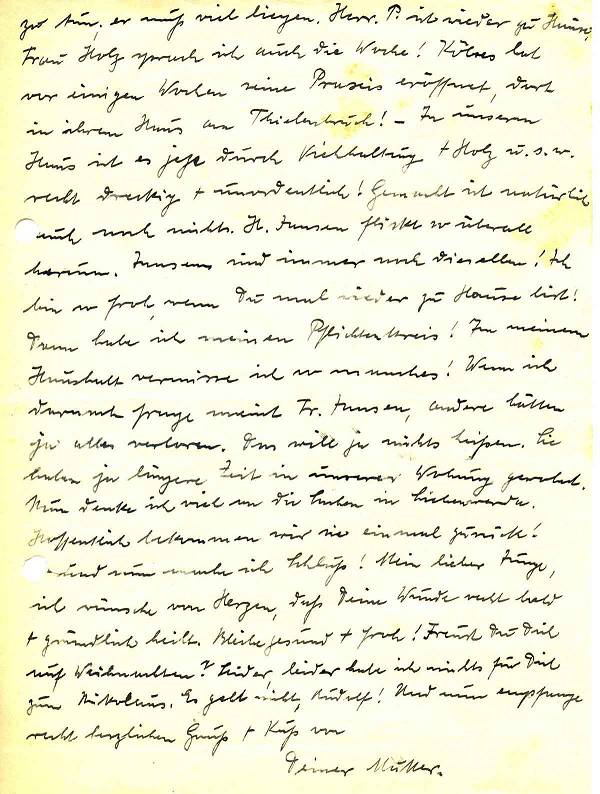 zu tun, er muß viel liegen. Herr P. ist wieder zu Hause,
Frau Holz sprach ich auch die Woche! Kölves hat
vor einigen Wochen seine Praxis eröffnet, dort
in ihrem Haus am Thielenbruch! – In unserm
Haus ist es jetzt durch Viehhaltung + Holz u.s.w.
recht dreckig + unordentlich! Gemacht ist natürlich
auch noch nichts. H. Jansen flickt so überall
herum. Jansens sind immer noch dieselben! Ich
bin so froh, wenn Du mal wieder zu Hause bist!
Dann habe ich meinen Pflichtenkreis! In meinem
Haushalt vermisse ich so manches! Wenn ich
darnach frage meint Fr. Jansen, andere hätten
ja alles verloren. Das will ja nichts heißen. Sie
haben ja längere Zeit in unserer Wohnung gewohnt.
Nun denke ich viel an die Sachen in Liebenwerda.
Hoffentlich bekommen wir sie einmal zurück!
– Und nun mache ich Schluß! Mein lieber Junge,
ich wünsche von Herzen, daß Deine Wunde recht bald
+ gründlich heilt. Bleibe gesund + froh! Freust Du Dich
auf Weihnachten? Leider, leider habe ich nichts für Dich
zum Nikolaus. Es geht nicht, Rudolf! Und nun empfange
recht herzlichen Gruß + Kuß von
Deiner Mutter.